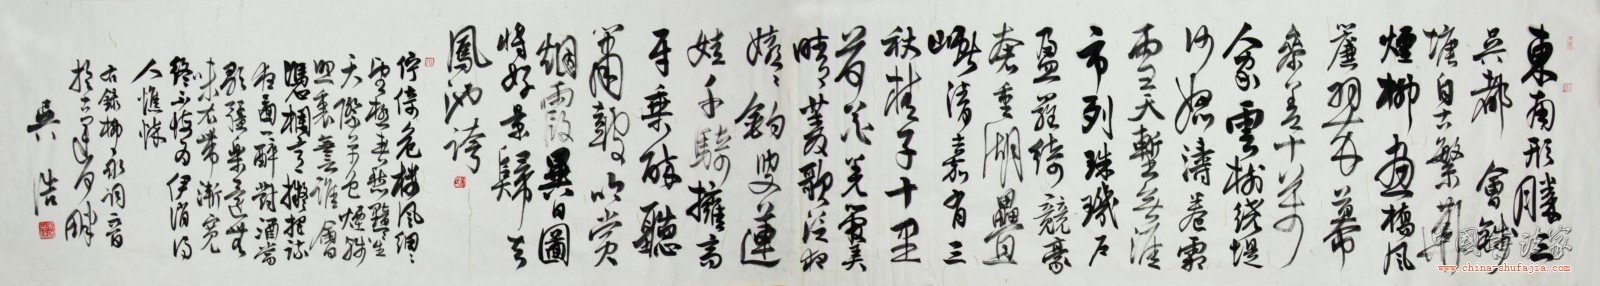 東南形勝三
吳都會錢
塘自古繁華
煙柳畫橋風
簾翠幕
參差十萬
人家雲樹繞堤
沙怒濤卷霜
雪天塹無涯
市列珠璣戶
盈羅綺競豪
奢重湖疊
巘清嘉有三
秋桂子十里
荷花羌管弄
晴菱歌泛夜
嬉〻釣叟蓮
娃千騎擁高
牙乘醉聽
簫鼓吟賞
烟霞異日圖
將好景歸去
鳳池誇
佇倚危樓風細〻
望極春愁黯〻生
天際草色煙殘
照裏無誰會
憑欄意擬把疏
狂圖一醉對酒當
歌強樂還無
味衣帶漸寬
終不悔為伊消得
人憔悴
右錄柳永詞二首
吳浩
中國書法家
www.china-shufajia.com